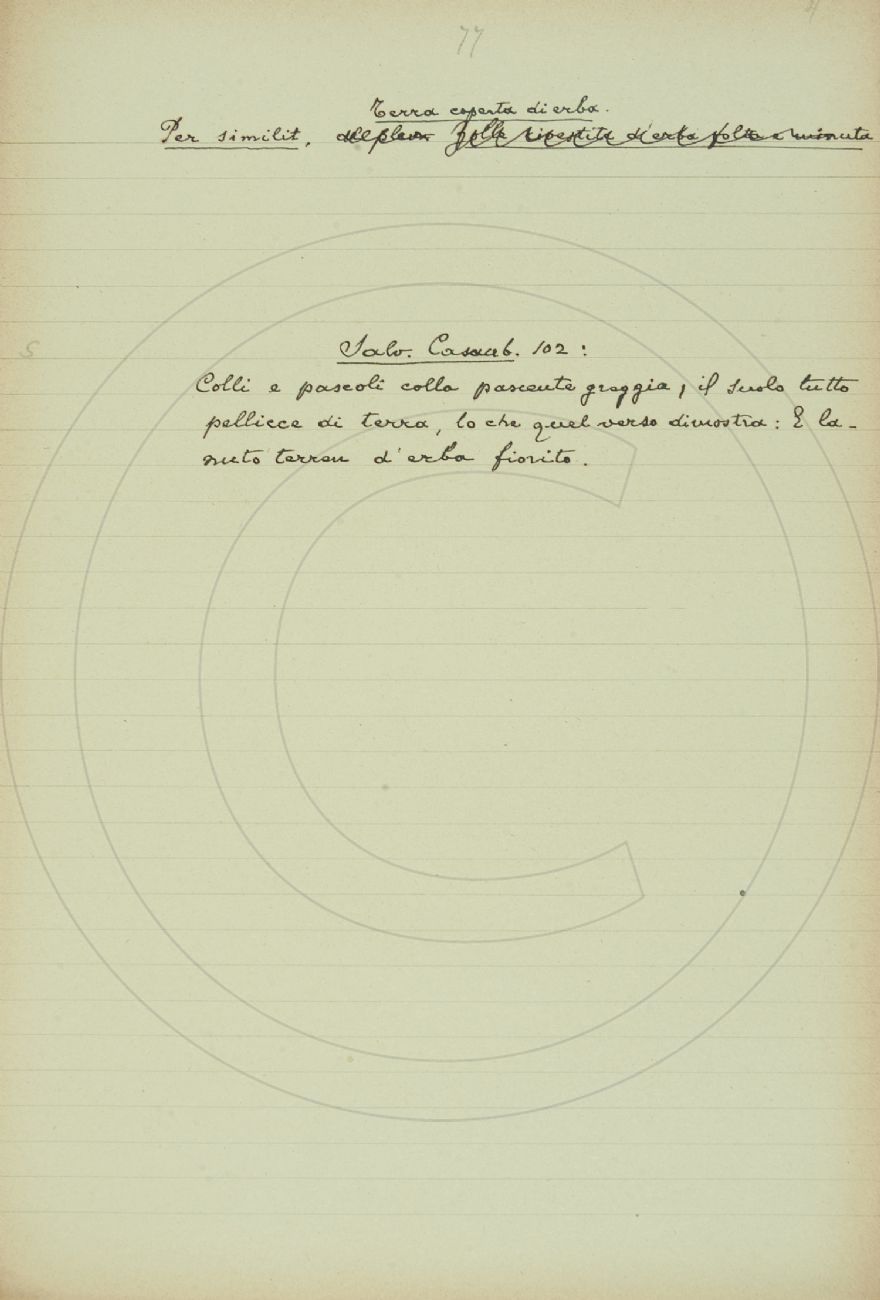 77
Terra coperta di erba.
Per similit, Zolla rivestita d'erba folta e minuta
Salv. Casaub. 102 :
S
Colli e pascoli colla pascente greggia, il suolo tutto
pellicce di terra, lo che quel verso dimostra: E la-
nuto terren d'erba fiorito.